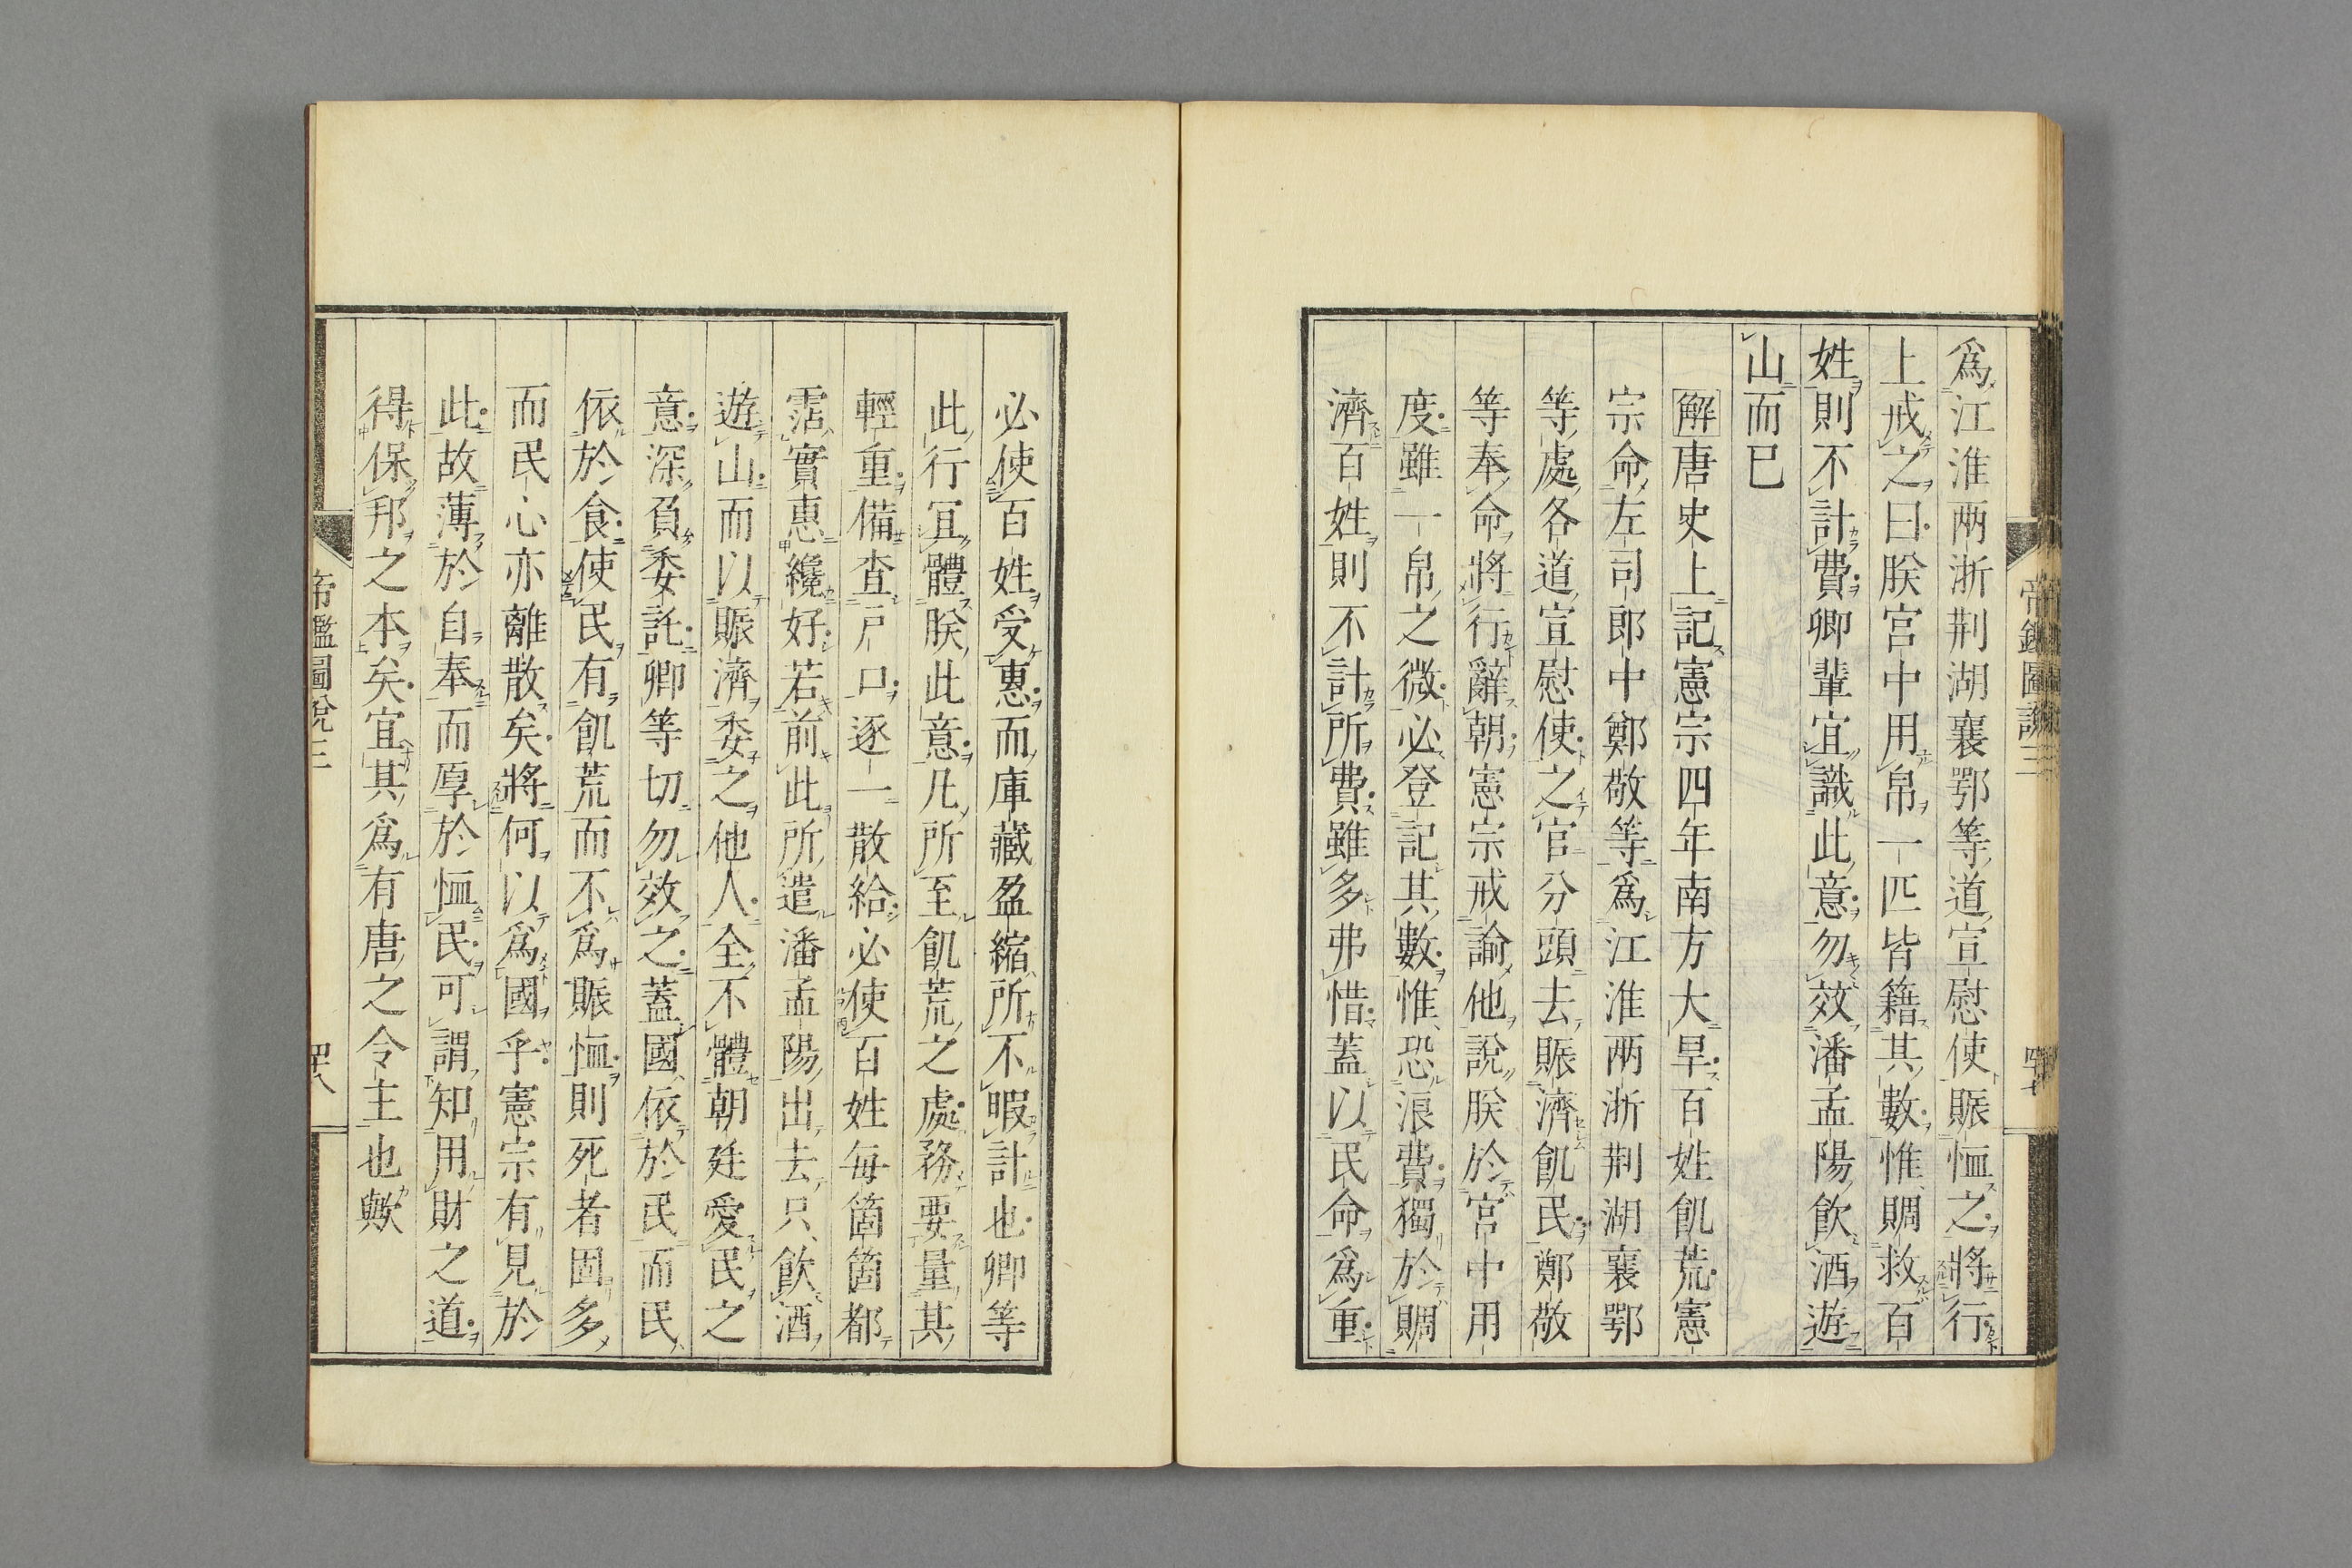 爲江淮兩浙荆湖襄鄂等道宣慰使賑恤之將行
上戒之曰朕宮中用帛一匹皆籍其數惟賙救百
姓則不計費卿輩宜識此意勿效潘孟陽飲酒遊
山而已
解唐史上記憲宗四年南方大旱百姓飢荒憲
宗命左司郎中鄭敬等爲江淮兩浙荆湖襄鄂
等處各道宣慰使之官分頭去賑濟飢民鄭敬
等奉命將行辭朝憲宗戒諭他說朕於宮中用
度雖一帛之微必登記其數惟恐浪費獨於賙
濟百姓則不計所費雖多弗惜蓋以民命爲重
必使百姓受惠而庫藏盈縮所不暇計也卿等
此行冝體朕此意凡所至飢荒之處務要量其
輕重備查戸口逐一散給必使百姓毎箇箇都
霑實惠纔好若前此所遣潘孟陽出去只飲酒
遊山而以賑濟委之他人全不體朝廷愛民之
意深負委託卿等切勿效之蓋國依於民而民
依於食使民有飢荒而不爲賑恤則死者固多
而民心亦離散矣將何以爲國乎憲宗有見於
此故薄於自奉而厚於恤民可謂知用財之道
得保邦之本矣宜其爲有唐之令主也歟
帝鑑圖說三
四十八